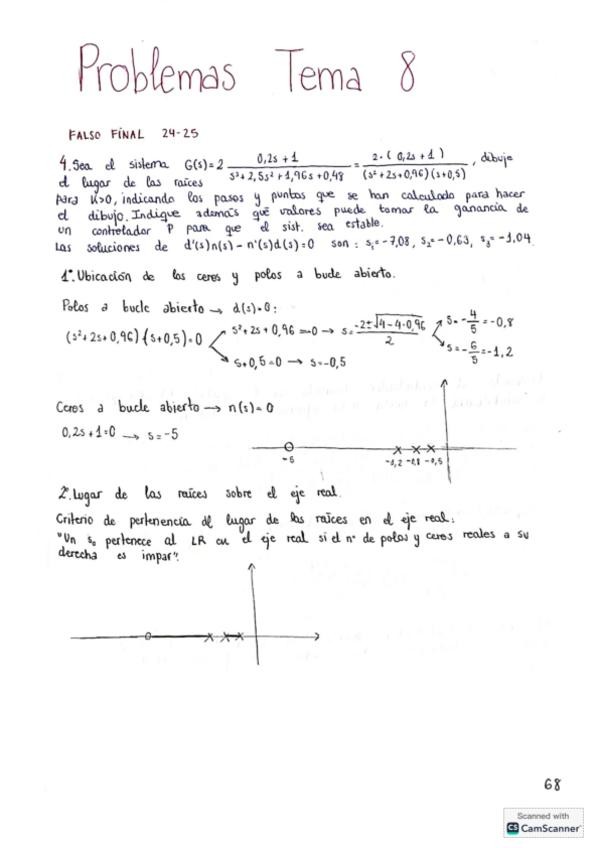 Problemas Tema 8
FALSO FINAL 24-25
4. Sea el sistema G(s)=2 (0,2s+1)/(s³+2,5s²+1,96s+0,48) = 2·(0,2s+1)/((s²+2s+0,96)(s+0,5)), dibuje
el lugar de las raíces
para K>0, indicando los pasos y puntos que se han calculado para hacer
el dibujo. Indique además qué valores puede tomar la ganancia de
un controlador P para que el sist. sea estable.
Las soluciones de d'(s)n(s)-n'(s)d(s)=0 son: s₁=-7,08, s₂=-0,63, s₃=-1,04.
1º. Ubicación de los ceros y polos a bucle abierto.
Polos a bucle abierto → d(s)=0:
(s²+2s+0,96)(s+0,5)=0
s²+2s+0,96=0 → s=(-2±√(4-4·0,96))/2
s=-4/5=-0,8
s=-6/5=-1,2
s+0,5=0 → s=-0,5
Ceros a bucle abierto → n(s)=0
0,2s+1=0 → s=-5
-5 -1,2 -0,8 -0,5
2º. Lugar de las raíces sobre el eje real.
Criterio de pertenencia al lugar de las raíces en el eje real:
"Un s₀ pertenece al LR en el eje real si el nº de polos y ceros reales a su
derecha es impar".
68
Scanned with
CS CamScanner